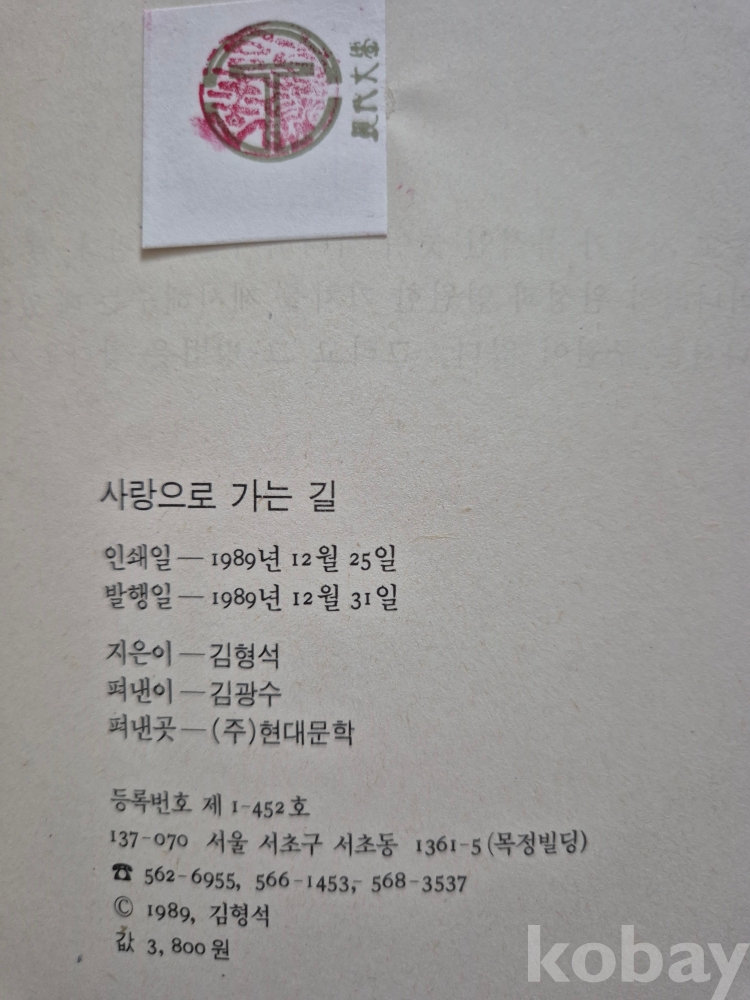 現代文學
사랑으로 가는 길
인쇄일 — 1989년 12월 25일
발행일 — 1989년 12월 31일
지은이 — 김형석
펴낸이 — 김광수
펴낸곳 — (주)현대문학
등록번호 제 1-452호
137-070 서울 서초구 서초동 1361-5(목정빌딩)
☎ 562-6955, 566-1453, 568-3537
© 1989, 김형석
값 3,800원
kobay